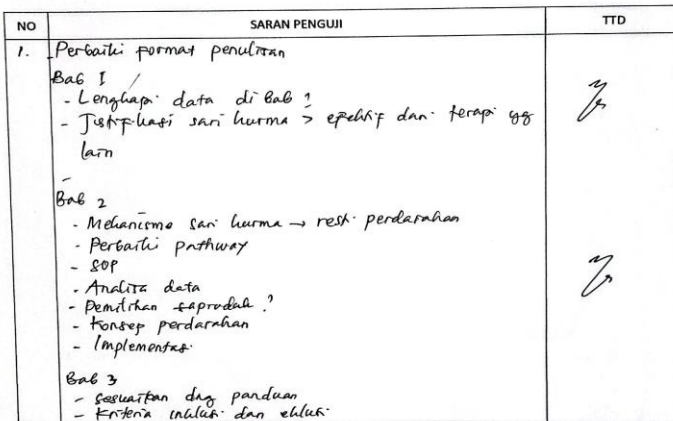 NO SARAN PENGUJI TTD
1. Perbaiki format penulisan
Bab I
- Lengkapi data di Bab 1
- Justifikasi sari kurma > efektif dari terapi yg
lain
Bab 2
- Mekanisme sari kurma → resti perdarahan
- Perbaiki pathway
- SOP
- Analisa data
- Pemilihan ?
- Konsep perdarahan
- Implementasi
Bab 3
- sesuaikan dng panduan
- Kriteria inklusi dan eklusi